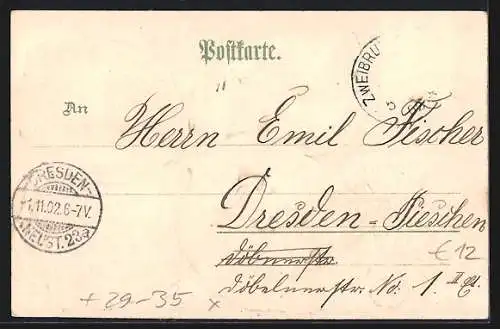 Postkarte.
ZWEIBRÜ
5
An
Herrn Emil Fischer
DRESDEN-
*1.11.02.6-7V.
NEUST. 23a
Dresden-Pieschen
Döbelnerstr. No. 1 II Et.
€ 12
+ 29-35 x